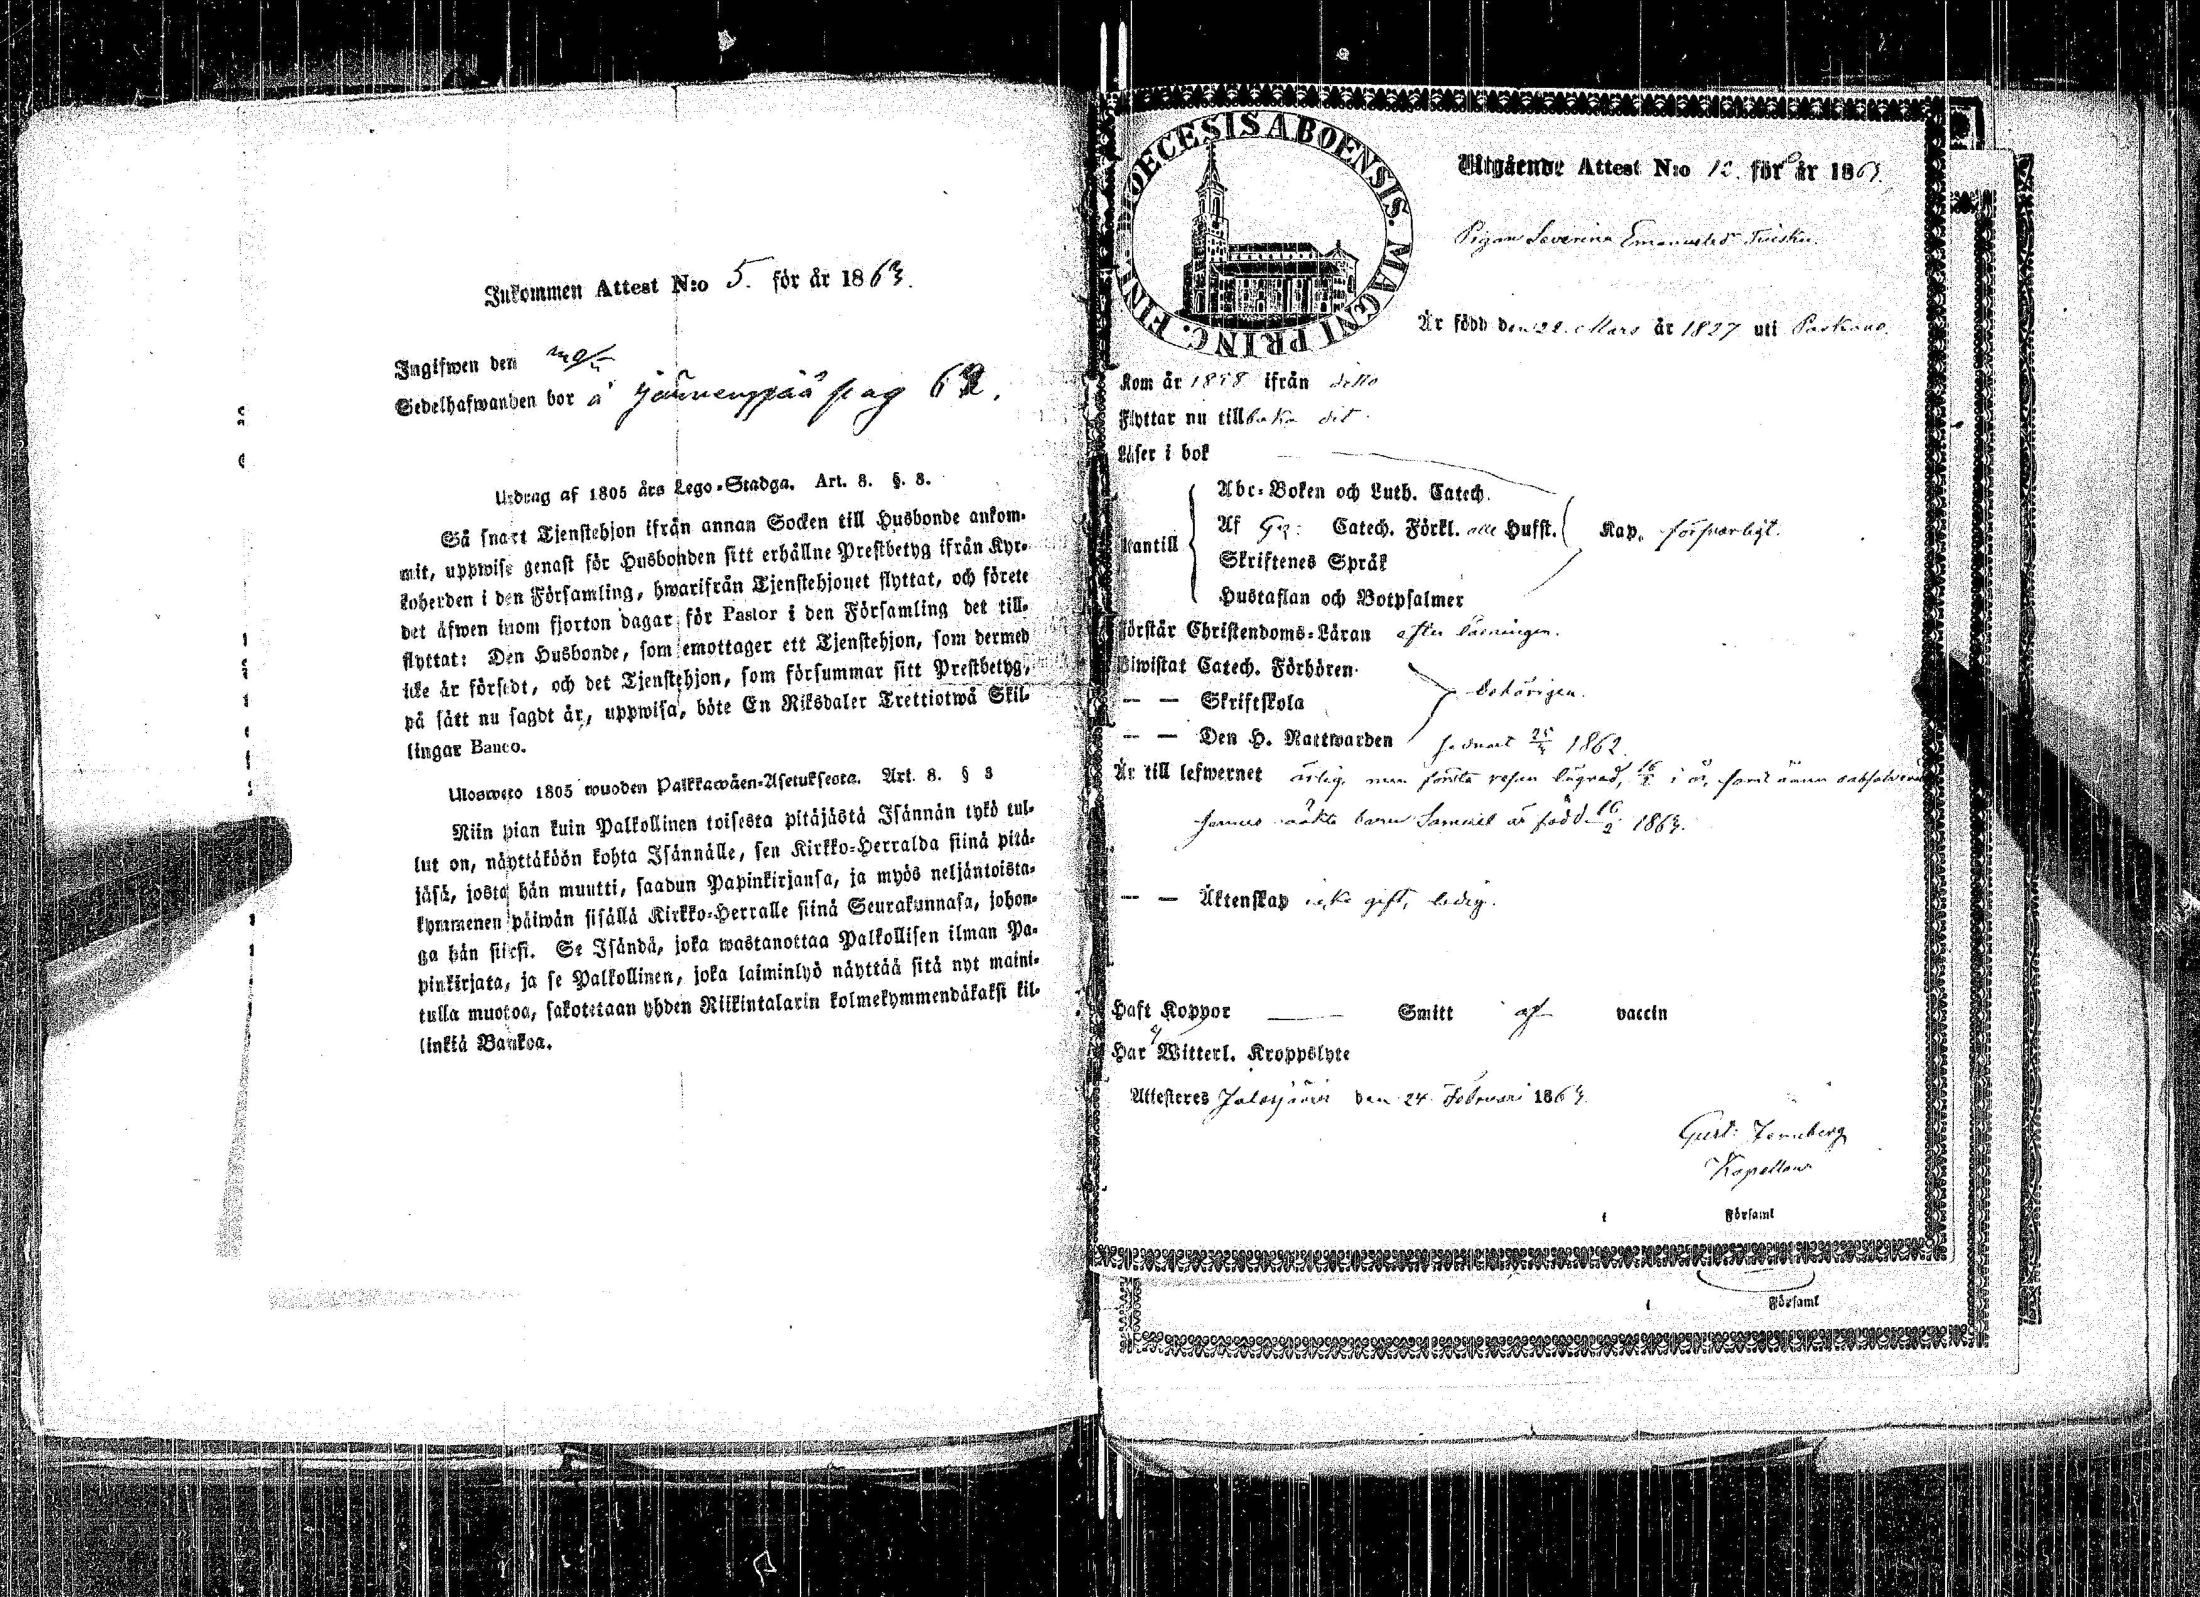 Inkommen Attest N:o 5. för år 1863.
Ingifwen den
Sedelhafwanden bor å pag 62.
Utdrag af 1805 års Lego-Stadga. Art. 8. §. 3.
Så snart Tjenstehjon ifrån annan Socken till Husbonde ankom-
mit, uppwise genast för Husbonden sitt erhållne Prestbetyg ifrån Kyr-
koherden i den Församling, hwarifrån Tjenstehjonet flyttat, och förete
det äfwen inom fjorton dagar för Pastor i den Församling det till-
flyttat: Den Husbonde, som emottager ett Tjenstehjon, som dermed
icke är försedt, och det Tjenstehjon, som försummar sitt Prestbetyg,
på sätt nu sagdt är, uppwisa, böte En Riksdaler Trettiotwå Skil-
lingar Banco.
Uloswето 1805 wuoden Palkkawäen-Asetuksesta. Art. 8. § 3
Niin pian kuin Palkollinen toisesta pitäjästä Isännän tykö tul-
lut on, näyttäköön kohta Isännälle, sen Kirkko-Herralda siinä pitä-
jäsä, josta hän muutti, saadun Papinkirjansa, ja myös neljäntoista-
kymmenen päiwän sisällä Kirkko-Herralle siinä Seurakunnasa, johon-
ga hän siirsi. Se Isändä, joka wastanottaa Palkollisen ilman Pa-
pinkirjata, ja se Palkollinen, joka laiminlyö näyttää sitä nyt maini-
tulla muotoa, sakotetaan yhden Riikintalarin kolmekymmendäkaksi kil-
linkiä Bankoa.
DIOECESIS ABOENSIS. MAGNI PRINC. FINL.
Utgående Attest N:o 12. för år 1863.
Pigan Severina Emanuelsd
Är född den 22. Mars år 1827 uti Parkano.
Kom år 1858 ifrån ditto
Flyttar nu tillbaka dit.
Läser i bok
Abc-Boken och Luth. Catech.
Utantill Af Catech. Förkl. alle Husst. Kap. försvarligt.
Skriftenes Språk
Hustaflan och Botpsalmer
Förstår Christendoms-Läran efter läsningen.
Biwistat Catech. Förhören
— — Skriftskola behörigen.
— — Den H. Nattwarden senast 1862.
Är till lefwernet ärlig, men resan lägrad, i år,
hennes oäkta barn Samuel är född 1863.
— — Äktenskap icke gift, ledig.
Haft Koppor — Smitt af vaccin
Har Witterl. Kroppslyte
Attesteres Jalasjärvi den 24 Februari 1863.
Gust: Jernberg
Kapellan
i Församl
i Församl